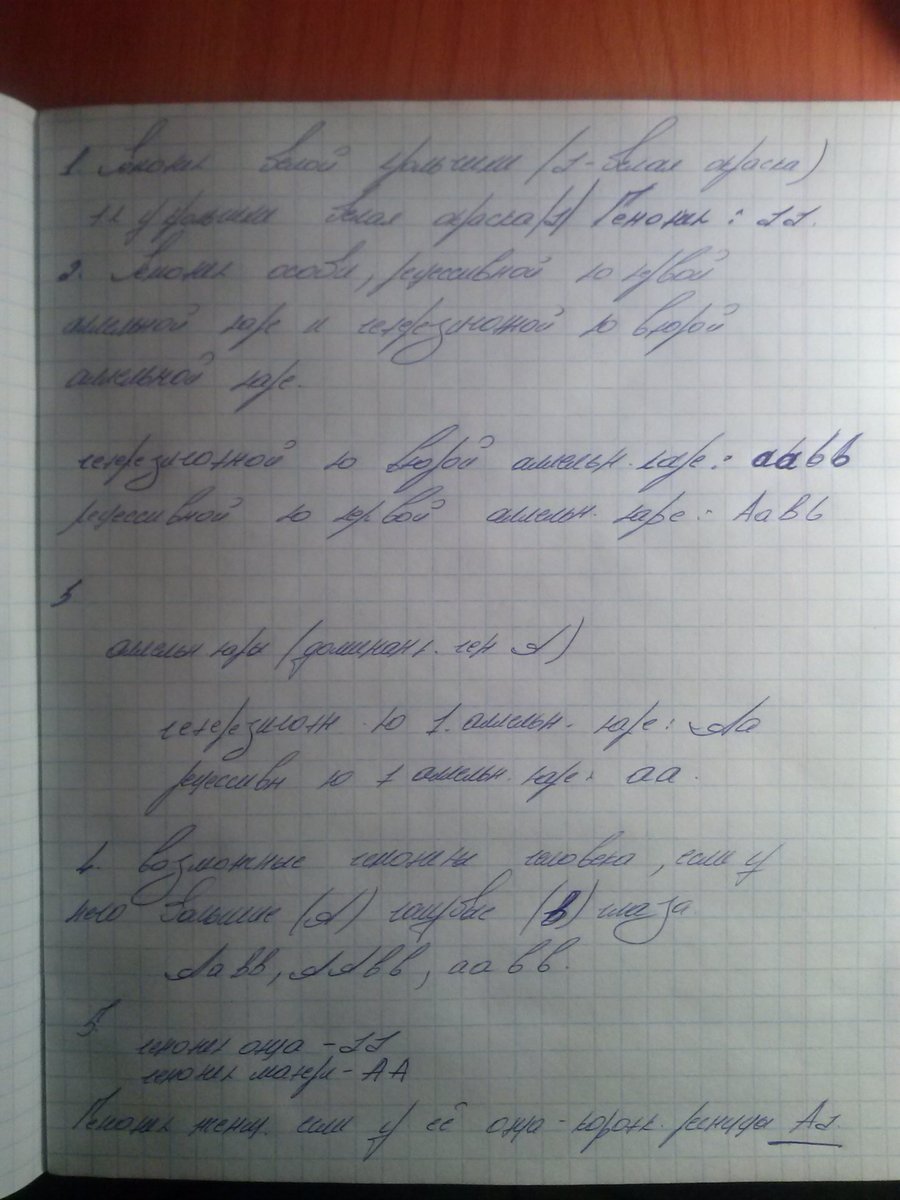 1. Генотип белой крольчихи (а-белая окраска)
т.к у крольчихи белая окраска(а) Генотип: аа.
2. Генотип особи, рецессивной по первой
аллельной паре и гетерозиготной по второй
аллельной паре.
гетерозиготной по второй аллельн. паре: ааbb
рецессивной по первой аллельн. паре: АаBb
3
аллельн пары (доминант. ген А)
гетерозиготн по 1. аллельн. паре: Аа
рецессивн по 1 аллельн. паре: аа.
4. возможные генотипы человека, если у
него большие (А) голубые (в) глаза
Аавв, ААвв, аавв.
5.
генотип отца - аа
генотип матери - АА
Генотип женщ. если у её отца - коротк. ресницы Аа.